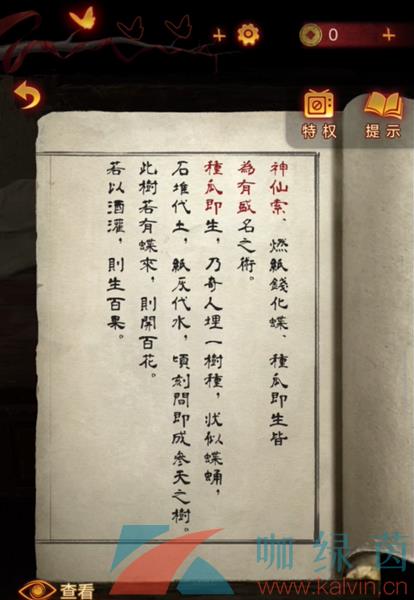 0
特权
提示
神仙索、燃紙錢化蝶、種瓜即生皆
為有盛名之術。
種瓜即生，乃奇人埋一樹種，狀似蝶蛹，
石堆代土，紙灰代水，頃刻間即成參天之樹。
此樹若有蝶來，則開百花。
若以酒灌，則生百果。
查看
咖绿茵
www.kalvin.cn